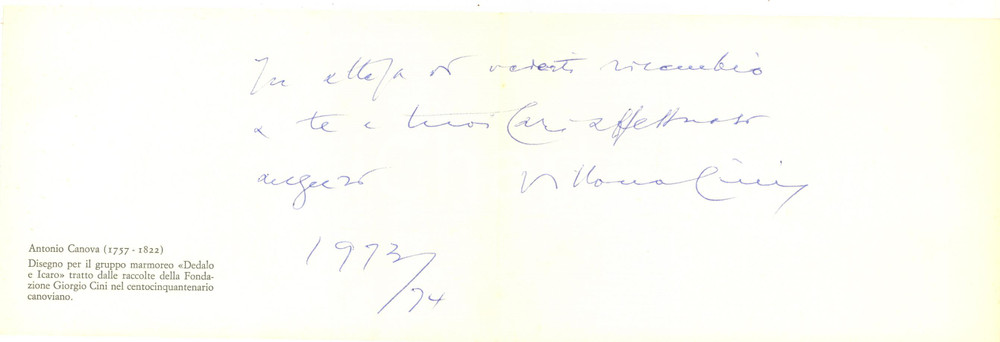 In attesa di vederti ricambio
a te e tuoi Cari affettuoso
augurio Vittorio Cini
1973/74
Antonio Canova (1757 - 1822)
Disegno per il gruppo marmoreo «Dedalo
e Icaro» tratto dalle raccolte della Fonda-
zione Giorgio Cini nel centocinquantenario
canoviano.